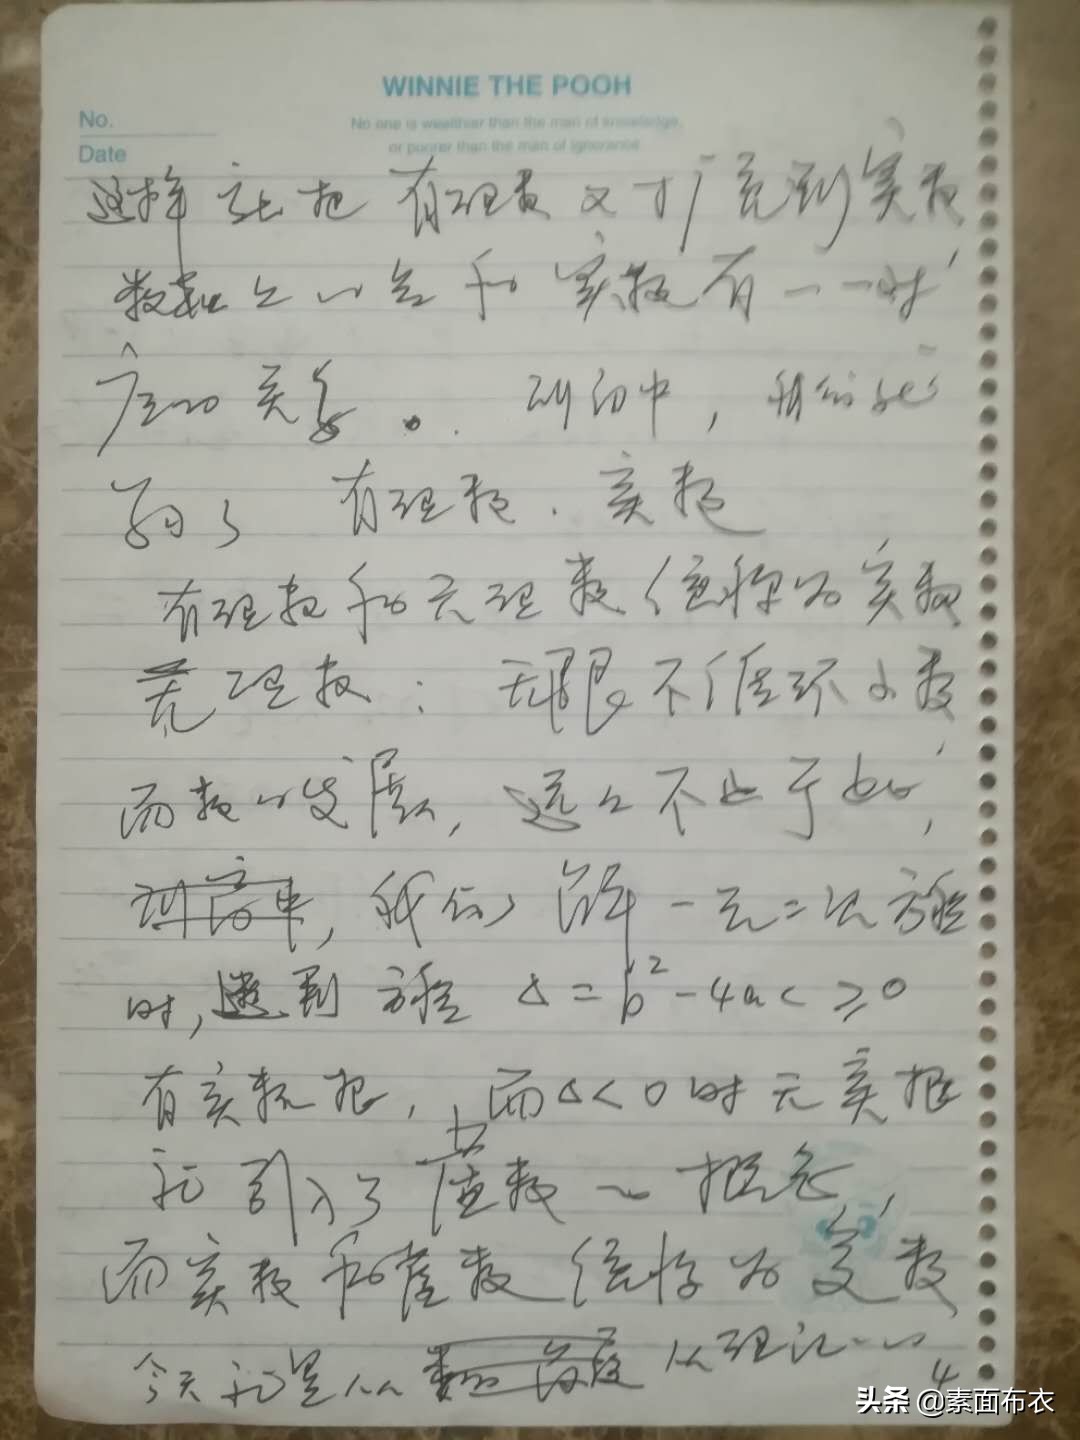 WINNIE THE POOH
No.
No one is wealthier than the man of knowledge,
Date
or poorer than the man of ignorance
这样就把有理数又扩充到实数
数轴上的点和实数有一一对
应的关系。到初中，我们就
学了 有理数、实数
有理数和无理数统称为实数
无理数：无限不循环小数
而数的发展，远远不止于此，
我们解一元二次方程
时，遇到方程 Δ=b²-4ac≥0
有实数根，而Δ<0时无实根
就引入了虚数的概念，
而实数和虚数统称为复数
今天就是从 从理论的
4
头条 @素面布衣